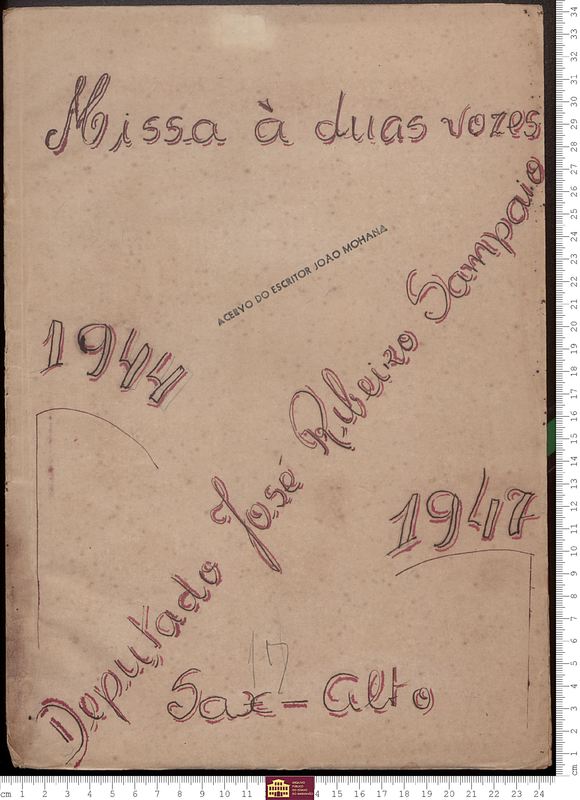 Missa à duas vozes
ACERVO DO ESCRITOR JOÃO MOHANA
1944
Deputado José Ribeiro Sampaio
1947
17
Sax - Alto
cm 1 2 3 4 5 6 7 8 9 10 11 14 15 16 17 18 19 20 21 22 23 24
cm 1 2 3 4 5 6 7 8 9 10 11 12 13 14 15 16 17 18 19 20 21 22 23 24 25 26 27 28 29 30 31 32 33 34